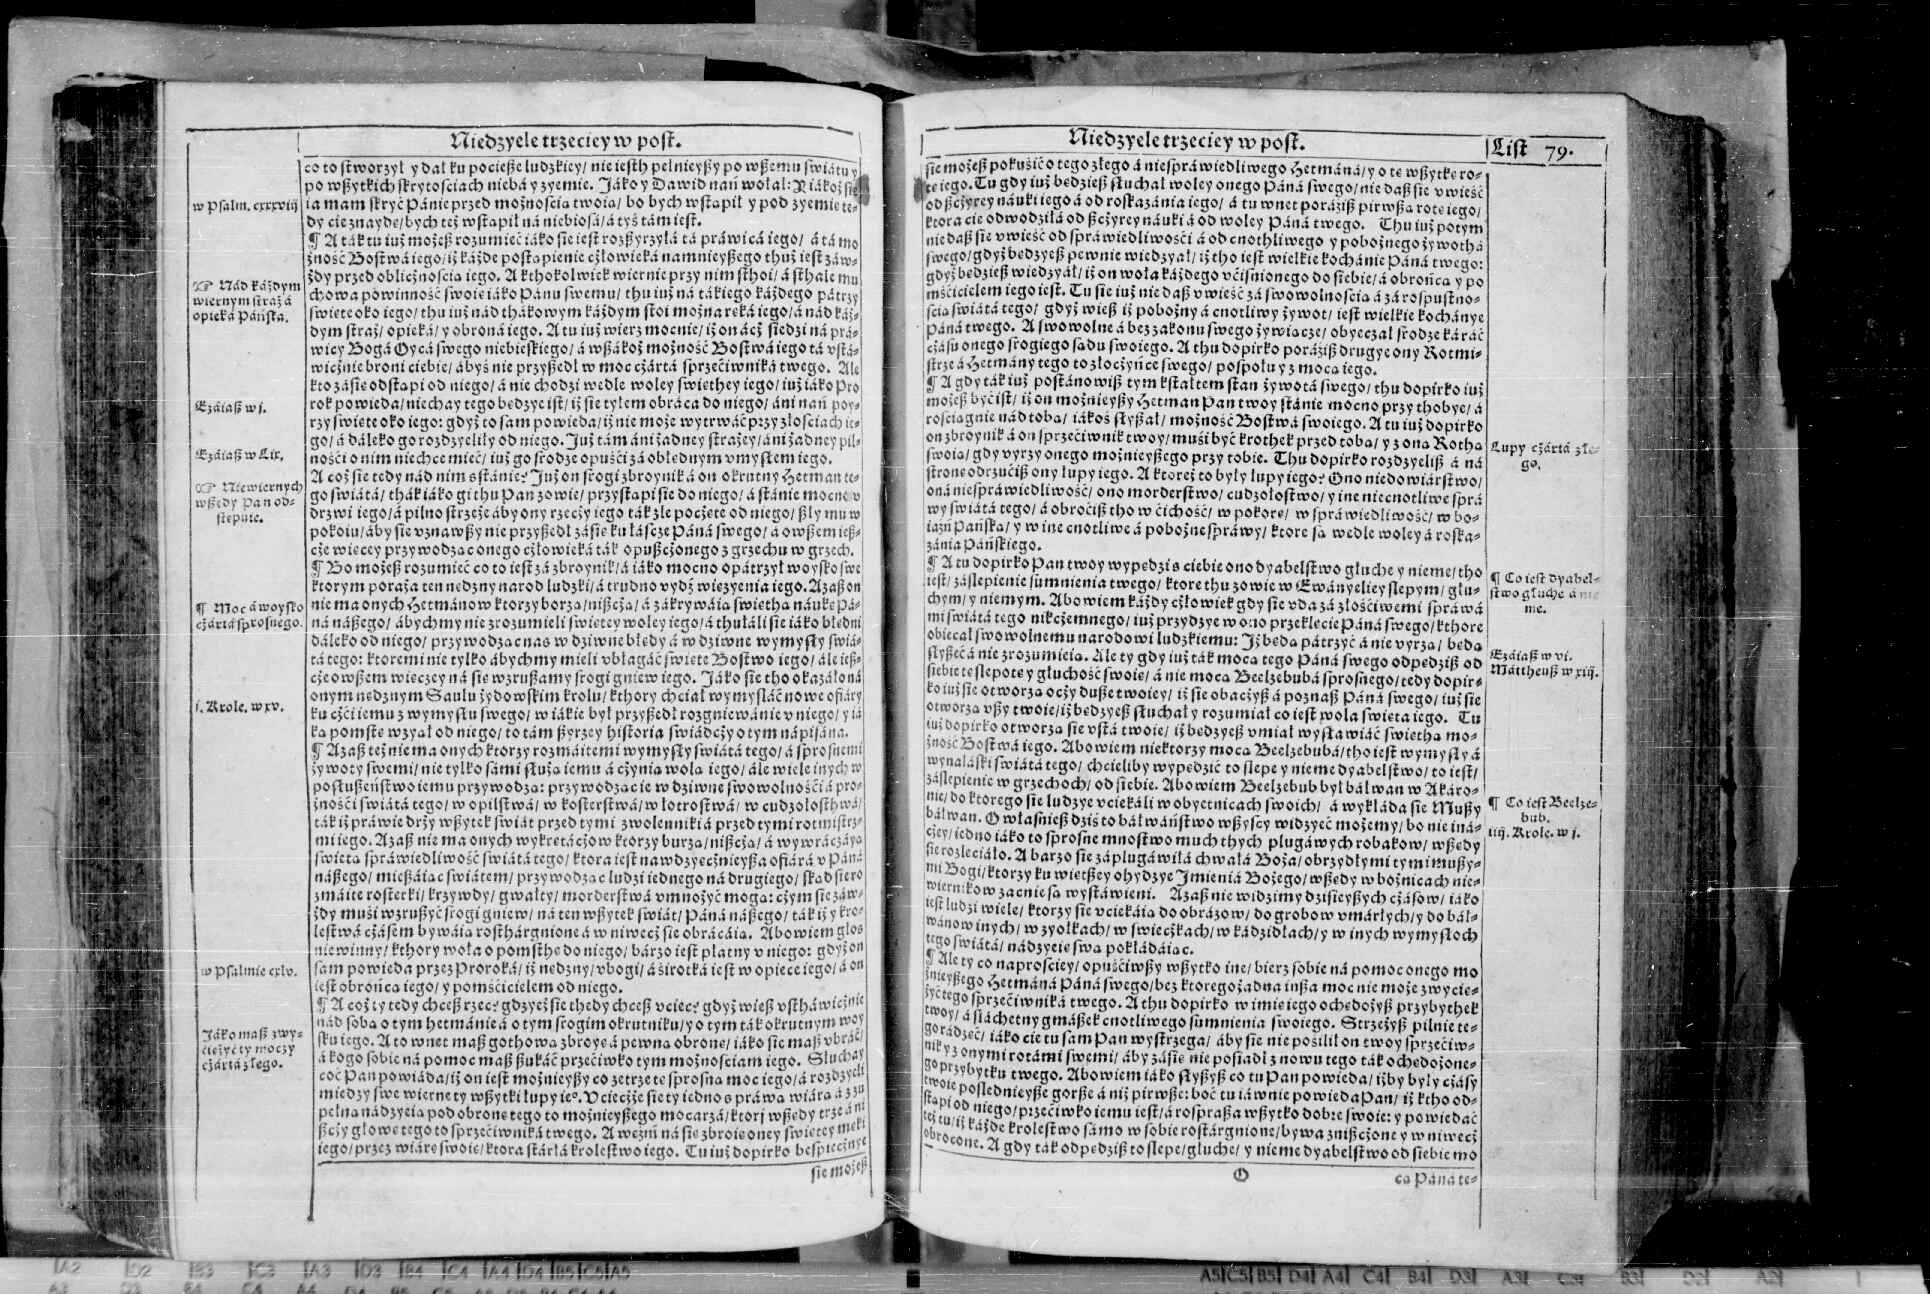 Niedzyele trzeciey w post.
co to stworzył y dał ku pociesze ludzkiey/ nie iesth pełnieyszy po wszemu swiátu y
po wszytkich skrytosciach niebá y zyemie. Jáko y Dawid nań wołał: Y iákoż się
w Psalm. cxxxviij
ia mam skryć Pánie przed możnoscią twoią/ bo bych wstąpił y pod zyemię te-
dy cię znaydę/ bych też wstąpił ná niebiosá/ á tyś tám iest.
¶ A ták tu iuż możesz rozumieć iáko sie iest rozszyrzyłá tá práwicá iego/ á tá mo
żność Bostwá iego/ iż káżde postąpienie człowieká namnieyszego thuż iest záw-
żdy przed oblicznoscią iego. A kthokolwiek wiernie przy nim sthoi/ á sthále mu
☞ Nád káżdym
wiernym straż á
opieká Páńska.
chowa powinność swoię iáko Pánu swemu/ thu iuż ná tákiego káżdego pátrzy
swięte oko iego/ thu iuż nád thákowym káżdym stoi można ręká iego/ á nád káż-
dym straż/ opieká/ y obroná iego. A tu iuż wierz mocnie/ iż on ácz siedzi ná prá-
wicy Bogá Oycá swego niebieskiego/ á wszákoż możność Bostwá iego tá vstá-
wicznie broni ciebie/ ábyś nie przyszedł w moc czártá sprzeciwniká twego. Ale
kto zásię odstąpi od niego/ á nie chodzi wedle woley swięthey iego/ iuż iáko Pro
Ezáiasz w j.
rok powieda/ niechay tego będzye ist/ iż sie tyłem obráca do niego/ áni nań poy-
rzy swięte oko iego: gdyż to sam powieda/ iż nie może wytrwáć przy złosciach ie-
go/ á dáleko go rozdzyeliły od niego. Już tám áni żadney strażey/ áni żadney pil-
Ezáiasz w Lix.
ności o nim niechce mieć/ iuż go srodze opuści zá obłędnym vmysłem iego.
☞ Niewiernych
wszędy Pan od-
stępuie.
A coż sie tedy nád nim sstánie? Już on srogi zbroynik á on okrutny Hetman te-
go swiátá/ ták iáko gi thu Pan zowie/ przystąpi sie do niego/ á stánie mocno v
drzwi iego/ á pilno strzeże áby ony rzeczy iego ták źle poczęte od niego/ szły mu w
pokoiu/ áby sie vznawszy nie przyszedł zásię ku łásce Páná swego/ á owszem iesz-
cze więcey przywodząc onego człowieká ták opuszczonego z grzechu w grzech.
¶ Bo możesz rozumieć co to iest zá zbroynik/ á iáko mocno opátrzył woysko swe
ktorym poraża ten nędzny narod ludzki/ á trudno vydź więzyenia iego. Azasz on
¶ Moc á woysko
czártá sprosnego.
nie ma onych Hetmánow ktorzy borzą/ niszczą/ á zákrywáią swiętha náukę Pá-
ná nászego/ ábychmy nie zrozumieli swiętey woley iego/ á thułáli sie iáko błędni
dáleko od niego/ przywodząc nas w dziwne błędy á w dziwne wymysły swiá-
tá tego: ktoremi nie tylko ábychmy mieli vbłagáć swięte Bostwo iego/ ále iesz-
cze owszem więczey ná się wzruszamy srogi gniew iego. Jáko sie tho okazáło ná
onym nędznym Saulu żydowskim krolu/ kthory chciał wymysláć nowe ofiáry
j. Krole. w xv.
ku czci iemu z wymysłu swego/ w iákie był przyszedł rozgniewánie v niego/ y iá
ką pomstę wzyął od niego/ to tám szyrzey historia swiádczy o tym nápisána.
¶ Azasz też nie ma onych ktorzy rozmáitemi wymysły swiátá tego/ á sprosnemi
żywoty swemi/ nie tylko sámi służą iemu á czynią wolą iego/ ále wiele inych w
posłuszeństwo iemu przywodzą: przywodząc ie w dziwne swowolności á pro-
żności swiátá tego/ w opilstwá/ w kosterstwá/ w łotrostwá/ w cudzołosthwá/
ták iż práwie drży wszytek swiát przed tymi zwolenniki á przed tymi rotmistrz-
mi iego. Azasz nie ma onych wykrętaczow ktorzy burzą/ niszczą/ á wywracáyą
swiętą spráwiedliwość swiátá tego/ ktora iest nawdzyecznieysza ofiárá v Páná
nászego/ mieszáiąc swiátem/ przywodząc ludzi iednego ná drugiego/ skąd sie ro
zmáite rosterki/ krzywdy/ gwałty/ morderstwá vmnożyć mogą: czym sie záw-
żdy musi wzruszyć srogi gniew/ ná ten wszytek swiát/ Páná nászego/ ták iż y kro-
lestwá czásem bywáią rosthárgnione á w niwecz sie obrácáią. Abowiem głos
niewinny/ kthory woła o pomsthę do niego/ bárzo iest płatny v niego: gdyż on
w Psalmie cxlv.
sam powieda przez Proroká/ iż nędzny/ vbogi/ á sirotká iest w opiece iego/ á on
iest obrońcą iego/ y pomścicielem od niego.
¶ A coż ty tedy chcesz rzec? gdzyeż sie thedy chcesz vciec? gdyż wiesz vstháwicznie
nád sobą o tym hetmánie á o tym srogim okrutniku/ y o tym ták okrutnym woy
Jáko masz zwy-
ciężyć ty moczy
czártá złego.
sku iego. A to wnet masz gothową zbroyę á pewną obronę/ iáko sie masz vbráć/
á kogo sobie ná pomoc masz szukáć przećiwko tym możnościam iego. Słuchay
coć Pan powiáda/ iż on iest możnieyszy co zetrze tę sprosną moc iego/ á rozdzyeli
miedzy swe wierne ty wszytki łupy ieº. Vciecże sie ty iedno s práwą wiárą á z zu
pełną nádzyeią pod obronę tego to możnieyszego mocarzá/ ktorj wszędy trze á ni
szczy głowę tego to sprzećiwniká twego. A weźmi ná się zbroię oney swiętey męki
iego/ przez wiárę swoię/ ktora stárłá krolestwo iego. Tu iuż dopirko bespiecznye
sie możesz
Niedzyele trzeciey w post.
List 79.
sie możesz pokusić o tego złego á niespráwiedliwego Hetmáná/ y o tę wszytkę ro-
tę iego. Tu gdy iuż będziesz słuchał woley onego Páná swego/ nie dasz sie vwieść
od szczyrey náuki iego á od roskazánia iego/ á tu wnet poráziß pirwszą rotę iego/
ktora cię odwodziłá od szczyrey náuki á od woley Páná twego. Thu iuż potym
nie dasz sie vwieść od spráwiedliwości á od cnothliwego y pobożnego żywothá
swego/ gdyż będzyesz pewnie wiedzyał/ iż tho iest wielkie kochánie Páná twego:
gdyż będziesz wiedzyał/ iż on woła káżdego vciśnionego do siebie/ á obrońcą y po
mścicielem iego iest. Tu sie iuż nie dasz vwieść zá swowolnością á zá rospustno-
ścią swiátá tego/ gdyż wiesz iż pobożny á cnotliwy żywot/ iest wielkie kochánye
Páná twego. A swowolne á bez zakonu swego żywiącze/ obyeczał srodze karáć
czásu onego srogiego sądu swoiego. A thu dopirko poráziß drugye ony Rotmi-
strze á Hetmány tego to złoczyńce swego/ pospołu y z mocą iego.
¶ A gdy ták iuż postánowisz tym kstałtem stan żywotá swego/ thu dopirko iuż
możesz być ist/ iż on możnieyszy Hetman Pan twoy stánie mocno przy thobye/ á
rościągnie nád tobą/ iákoś słyszał/ możność Bostwá swoiego. A tu iuż dopirko
on zbroynik á on sprzećiwnik twoy/ musi być krothek przed tobą/ y z oną Rothą
Łupy czártá złe-
go.
swoią/ gdy vyrzy onego możnieyszego przy tobie. Thu dopirko rozdzyelisz á ná
stronę odrzucisz ony łupy iego. A ktoreż to były łupy iego? Ono niedowiárstwo/
oná niespráwiedliwość/ ono morderstwo/ cudzołostwo/ y ine niecnotliwe sprá
wy swiátá tego/ á obrocisz tho w cichość/ w pokorę/ w spráwiedliwość/ w bo-
iaźń Páńską/ y w ine cnotliwe á pobożne spráwy/ ktore są wedle woley á roska-
zánia Páńskiego.
¶ A tu dopirko Pan twoy wypędzi s ciebie ono dyabelstwo głuche y nieme/ tho
¶ Co iest dyabel-
stwo głuche á nie
me.
iest/ záslepienie sumnienia twego/ ktore thu zowie w Ewányeliey slepym/ głu-
chym/ y niemym. Abowiem káżdy człowiek gdy sie vda zá złościwemi spráwá
mi swiátá tego nikczemnego/ iuż przydzye w ono przeklęcie Páná swego/ kthore
obiecał swowolnemu narodowi ludzkiemu: Iż będą pátrzyć á nie vyrzą/ będą
Ezáiasz w vi.
Mattheusz w xiij.
słyszeć á nie zrozumieią. Ale ty gdy iuż ták mocą tego Páná swego odpędzisz od
siebie tę slepotę y głuchość swoię/ á nie mocą Beelzebubá sprosnego/ tedy dopir-
ko iuż sie otworzą oczy dusze twoiey/ iż sie obaczysz á poznasz Páná swego/ iuż sie
otworzą vszy twoie/ iż będzyesz słuchał y rozumiał co iest wola swięta iego. Tu
iuż dopirko otworzą sie vstá twoie/ iż będzyesz vmiał wysławiáć swiętha mo-
żność Bostwá iego. Abowiem niektorzy mocą Beelzebubá/ tho iest wymysły á
wynaláski swiátá tego/ chcieliby wypędzić to slepe y nieme dyabelstwo/ to iest/
záslepienie w grzechoch/ od siebie. Abowiem Beelzebub był báłwan w Akáro-
¶ Co iest Beelze-
bub.
iiij. Krole. w j.
nie/ do ktorego sie ludzye vciekáli w obyetnicach swoich/ á wykłáda sie Muszy
báłwan. O własnieß dziś to báłwáństwo wszyscy widzyeć możemy/ bo nie iná-
czey/ iedno iáko to sprosne mnostwo much thych plugáwych robakow/ wszędy
sie rozleciáło. A bárzo sie záplugáwiłá chwałá Boża/ obrzydłymi tymi muszy-
mi Bogi/ ktorzy ku więtszey ohydzye Jmienia Bożego/ wszędy w bożnicach nie-
wiernikow zacnie są wystáwieni. Azasz nie widzimy dzisieyszych czásow/ iáko
iest ludzi wiele/ ktorzy sie vciekáią do obrázow/ do grobow vmárłych/ y do báł-
wánow inych/ w zyołkach/ w swieczkach/ w kádzidłach/ y w inych wymysłoch
tego swiátá/ nádzyeię swą pokłádáiąc.
¶ Ale ty co naprosciey/ opuściwszy wszytko ine/ bierz sobie ná pomoc onego mo
żnieyszego Hetmáná Páná swego/ bez ktorego żadna insza moc nie może zwycie-
żyć tego sprzećiwniká twego. A thu dopirko w imię iego ochędożysz przybythek
twoy/ á slachetny gmászek cnotliwego sumnienia swoiego. Strzeżysz pilnie te-
go rádzęć/ iáko cie tu sam Pan wystrzega/ áby sie nie posilił on twoy sprzećiw-
nik y z onymi rotámi swemi/ áby zásię nie posiadł z nowu tego ták ochędożone-
go przybytku twego. Abowiem iáko słyszysz co tu Pan powieda/ iżby były czásy
twoie poslednieysze gorsze á niż pirwsze: boć tu iáwnie powieda Pan/ iż ktho od-
stąpi od niego/ przećiwko iemu iest/ á rosprasza wszytko dobre swoie: y powiedáć
też tu/ iż káżde krolestwo sámo w sobie rostárgnione/ bywa zniszczone y w niwecz
obrocone. A gdy ták odpędzisz to slepe/ głuche/ y nieme dyabelstwo od siebie mo
cą Páná te-
A2 D2 B3 C3 A3 D3 B4 C4 A4 D4 B5 C5 A5
A5 C5 B5 D4 A4 C4 B4 D3 A3 C3 B3 D2 A2